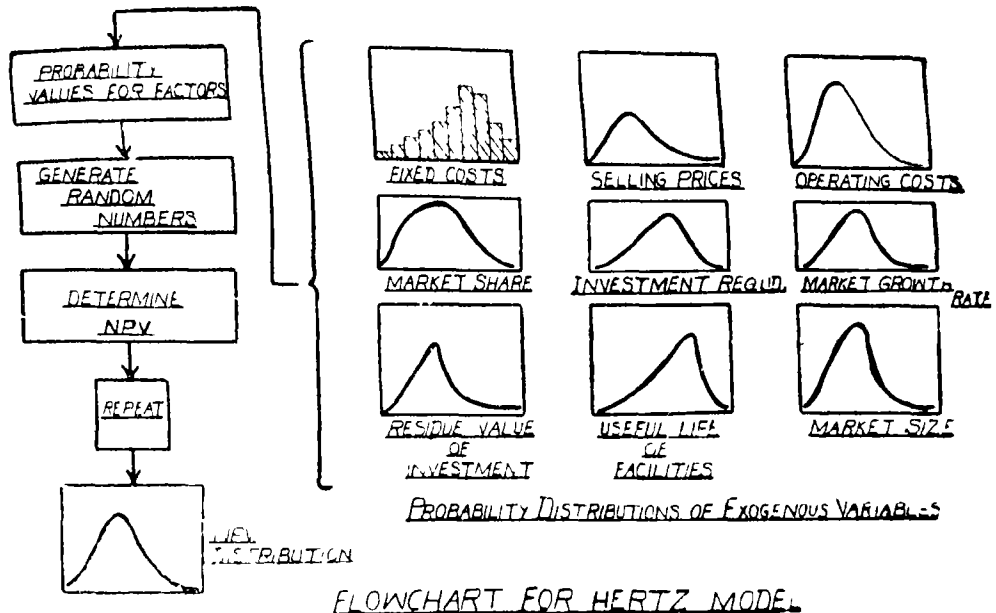 PROBABILITY
VALUES FOR FACTORS
GENERATE
RANDOM
NUMBERS
DETERMINE
NPV
REPEAT
DISTRIBUTION
FIXED COSTS
SELLING PRICES
OPERATING COSTS
MARKET SHARE
INVESTMENT REQUD.
MARKET GROWTH
RATE
RESIDUE VALUE
OF
INVESTMENT
USEFUL LIFE
OF
FACILITIES
MARKET SIZE
PROBABILITY DISTRIBUTIONS OF EXOGENOUS VARIABLES
FLOWCHART FOR HERTZ MODEL